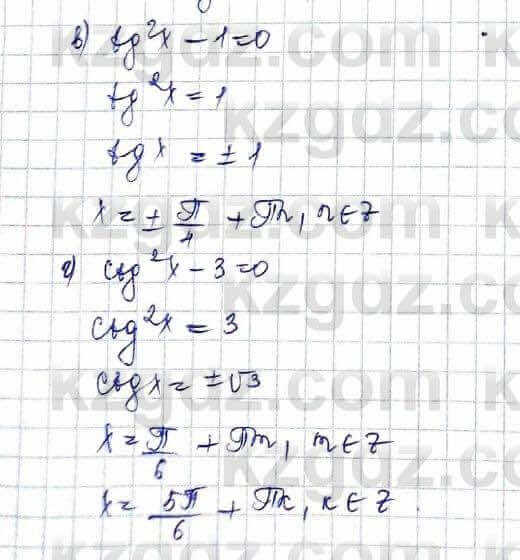 в) tg²x − 1 = 0
tg²x = 1
tgx = ± 1
x = ± π/4 + πn, n ∈ Z
г) ctg²x − 3 = 0
ctg²x = 3
ctgx = ±√3
x = π/6 + πn, n ∈ Z
x = 5π/6 + πk, k ∈ Z.
kzgdz.com